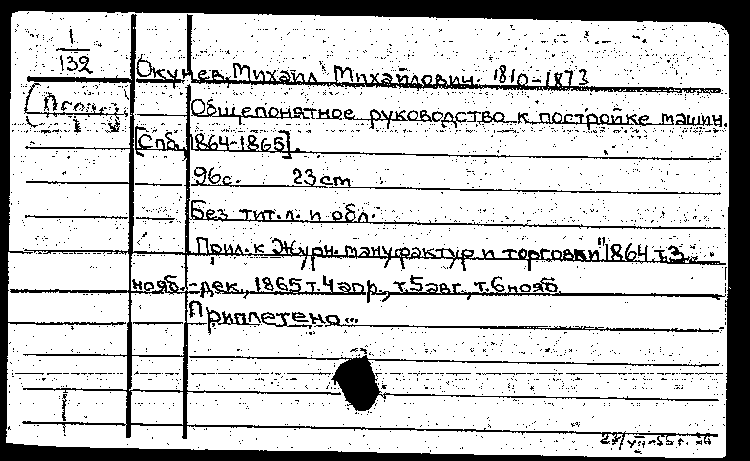 1
132
Окунев, Михаил Михайлович. 1810-1873
Общепонятное руководство к постройке машин.
[Спб., 1864-1865].
96с. 23cm
Без тит.л. и обл.
Прил. к Журн. мануфактур и торговли" 1864 т.3
нояб.-дек., 1865 т.4 апр., т.5 авг., т.6 нояб.
Приплетено...